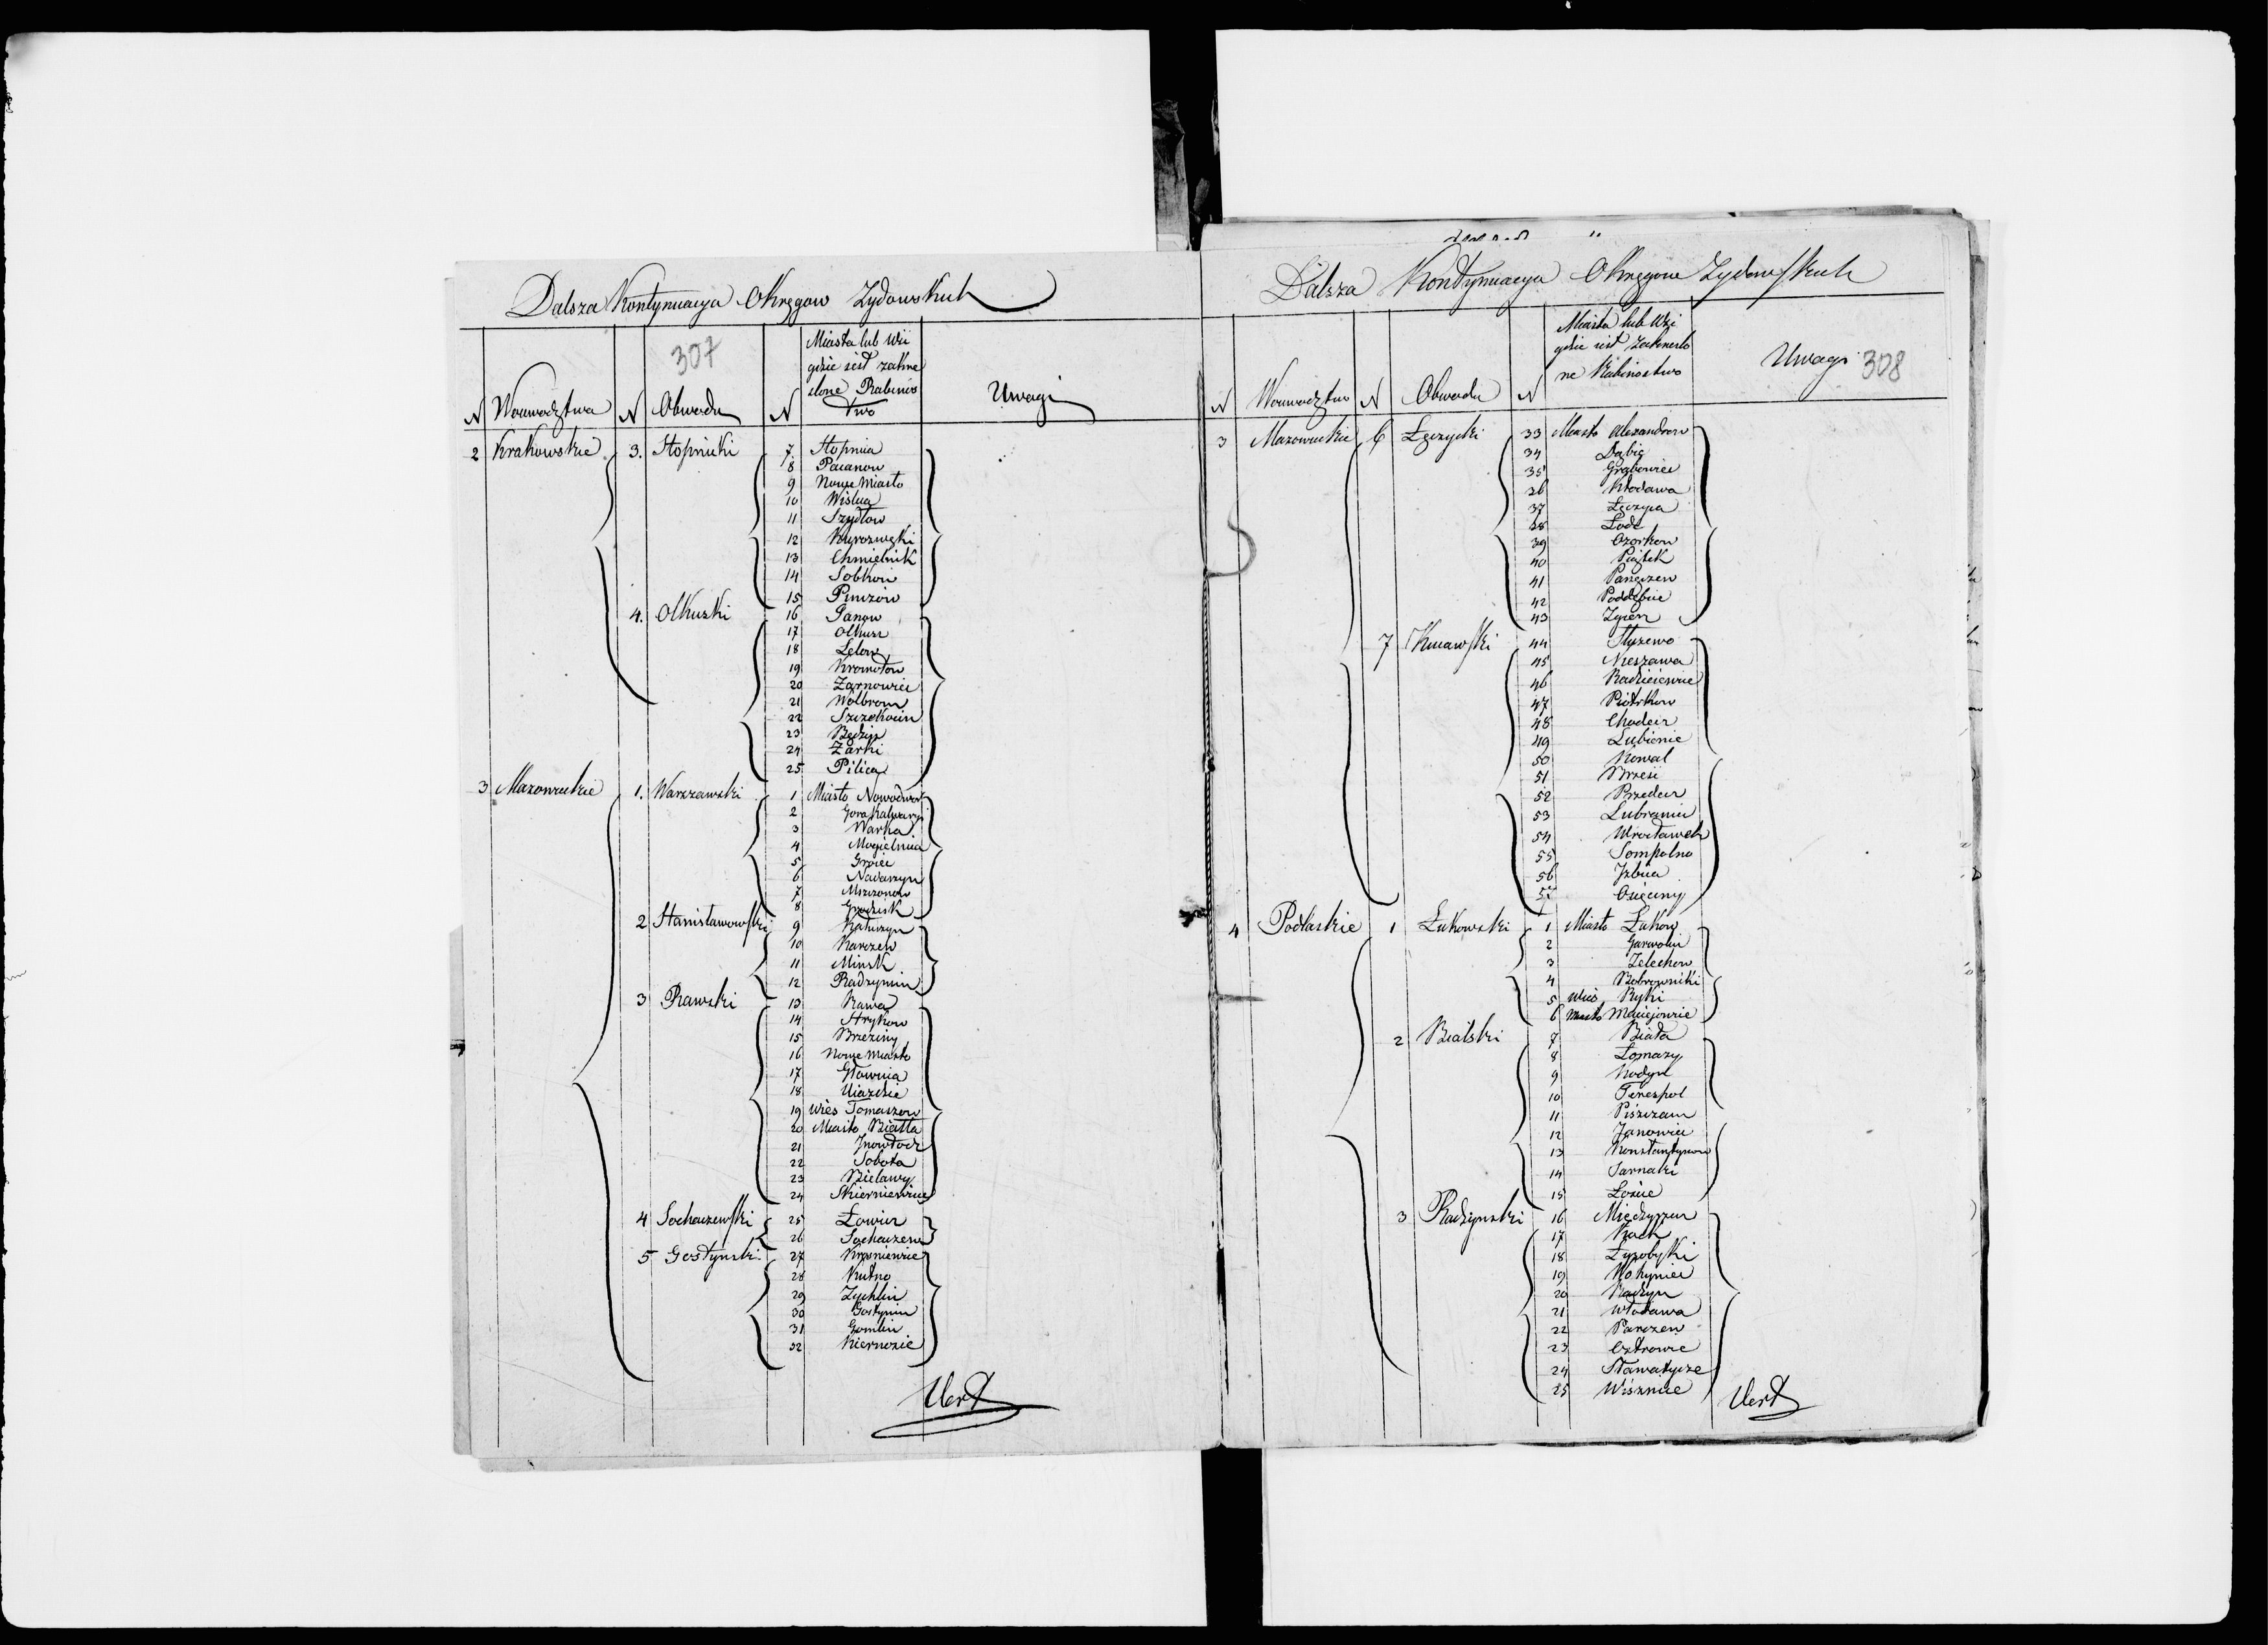 Dalsza Kontynuacya Okręgow Zydowskich
307
N Woiewodztwa N Obwodu N Miasta lub Wsi
gdzie iest zakre
slone Rabinos
two
Uwagi
2 Krakowskie 3. Stopnicki 7. Stopnica
8 Pacanow
9 Nowe Miasto
10 Wislica
11 Szydłow
12 Kurozwęki
13 Chmielnik
14 Sobkow
15 Pinczow
4. Olkuski 16 Janow
17 Olkusz
18 Lelow
19 Kromołow
20 Zarnowiec
21 Wolbrom
22 Szczekocin
23 Będzin
24 Żarki
25 Pilica
3 Mazowieckie 1. Warszawski 1 Miasto Nowodwor
2 Gora Kalwarya
3 Warka
4 Mogielnica
5 Groiec
6 Nadarzyn
7 Mszczonow
8 Grodzisk
2 Stanisławowski 9 Kałuszyn
10 Karczew
11 Minsk
12 Radzymin
3 Rawski 13 Rawa
14 Strykow
15 Brzeziny
16 Nowe Miasto
17 Głownia
18 Uiazdzie
19 Wies Tomaszow
20 Miasto Biatta
21 Jnowłodz
22 Sobota
23 Bielawy
24 Skierniewice
4 Sochaczewski 25 Łowicz
26 Sochaczew
5 Gostynski 27 Krosniewice
28 Kutno
29 Zychlin
30 Gostynin
31 Gomlin
32 Kiernozie
Vert
Dalsza Kontynuacya Okręgow Zydowskich
N Woiewodztw N Obwodu N Miasta lub Wsi
gdzie iest Zakreslo
ne Rabinostwo
Uwagi 308
3 Mazowieckie 6 Łęczycki 33 Miasto Alexandrow
34 Dąbie
35 Grabowiec
36 Kłodawa
37 Łęczyca
38 Łodz
39 Ozorkow
40 Piątek
41 Parzęczew
42 Poddębice
43 Zgierz
7 Kuiawski 44 Służewo
45 Nieszawa
46 Radzieiewice
47 Piotrkow
48 Chodecz
49 Lubienie
50 Kowal
51 Brzesc
52 Przedecz
53 Lubraniec
54 Wrocławek
55 Sompolno
56 Jzbica
57 Osięciny
4 Podlaskie 1 Łukowski 1 Miasto Łukow
2 Garwolin
3 Zelechow
4 Bobrowniki
5 Wieś Ryki
6 Miasto Maciejowice
2 Bialski 7 Biała
8 Łomazy
9 Kodyn
10 Terespol
11 Piszczam
12 Janowiec
13 Konstantynow
14 Sarnaki
15 Łosice
3 Radzynski 16 Międzyrzec
17 Kock
18 Łysobyki
19 Wohyniec
20 Radzyn
21 Włodawa
22 Parczew
23 Ostrowie
24 Sławatycze
25 Wisznice
Vert